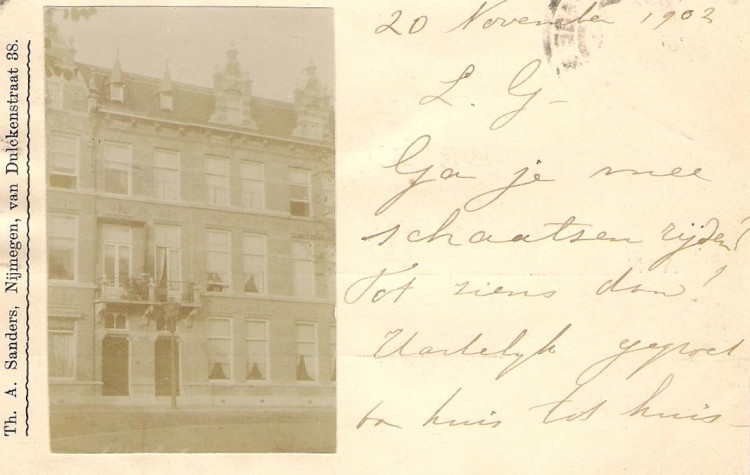 Th. A. Sanders, Nijmegen, van Dulckenstraat 38.
20 November 1902
L. G-
Ga je mee
schaatsen rijden?
Tot ziens dan!
Hartelijk gegroet
van huis tot huis-